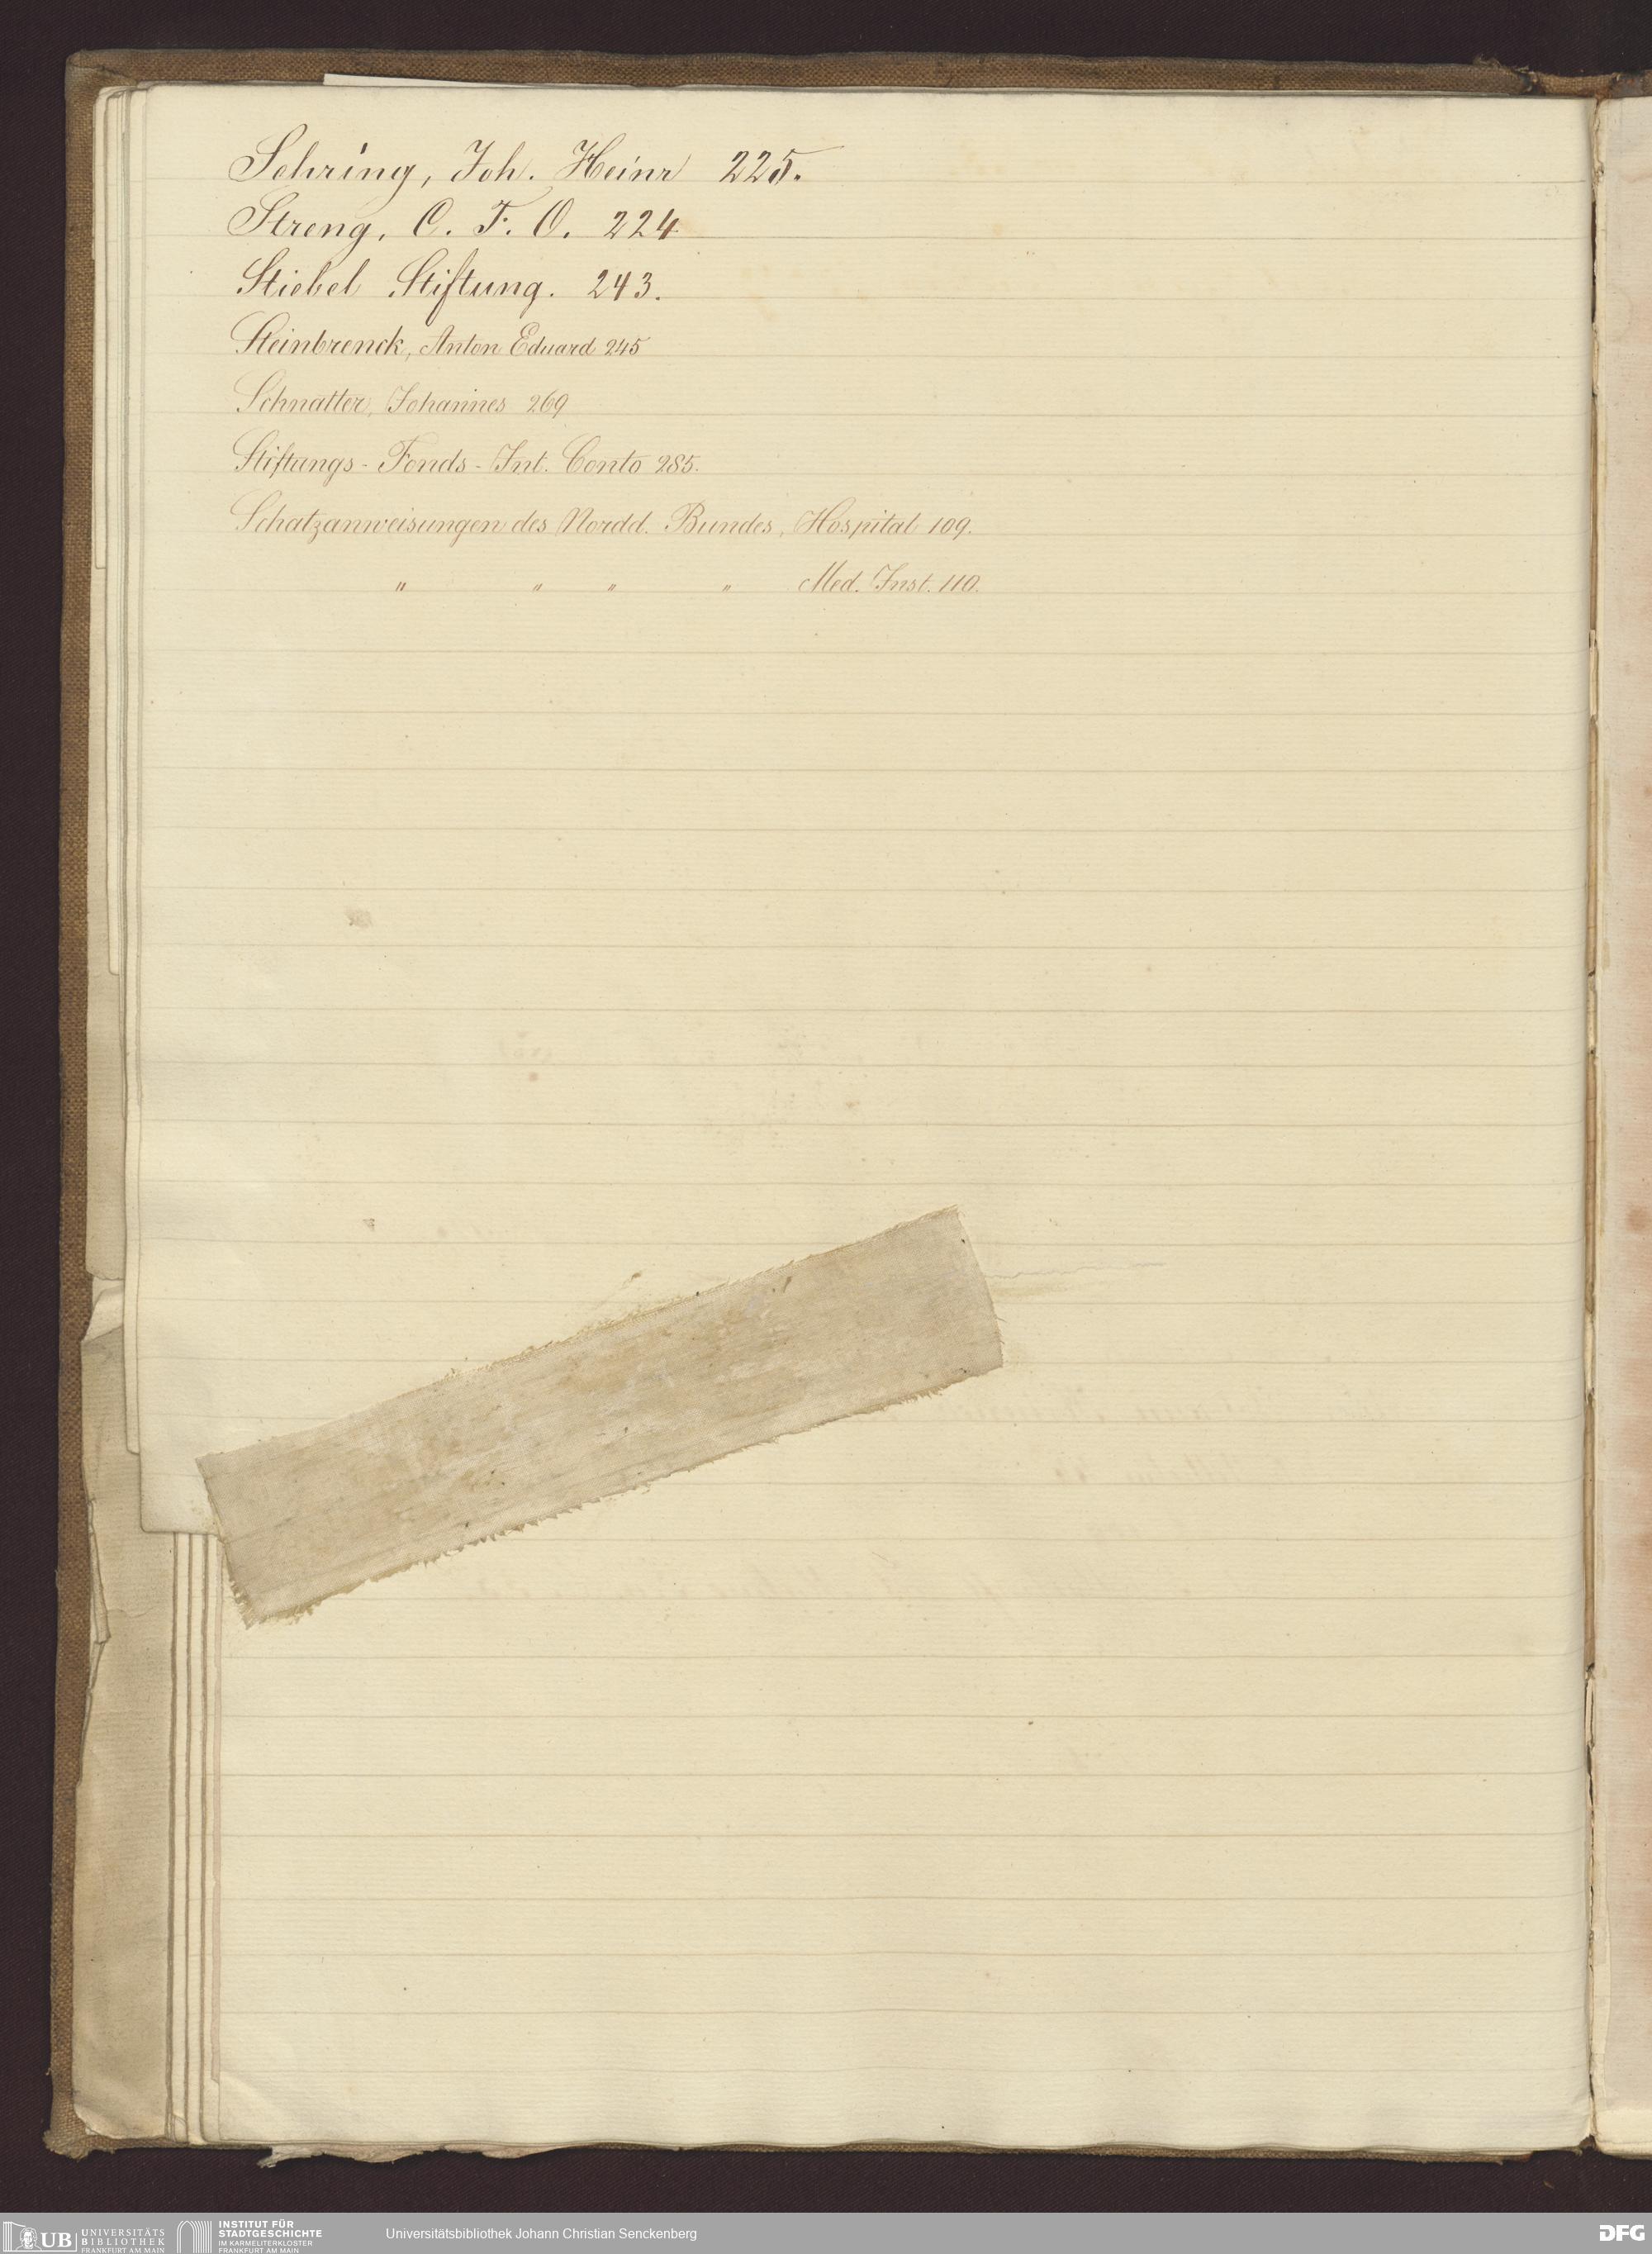 Sehring, Joh. Heinr 225.
Streng, C. F. O. 224
Stiebel Stiftung. 243.
Steinbrenck, Anton Eduard 245
Schnatter, Johannes 269
Stiftungs-Fonds-Int. Conto 285.
Schatzanweisungen des Nordd. Bundes, Hospital 109.
" " " " Med. Inst. 110.
UB UNIVERSITÄTS BIBLIOTHEK FRANKFURT AM MAIN
INSTITUT FÜR STADTGESCHICHTE IM KARMELITERKLOSTER FRANKFURT AM MAIN
Universitätsbibliothek Johann Christian Senckenberg
DFG